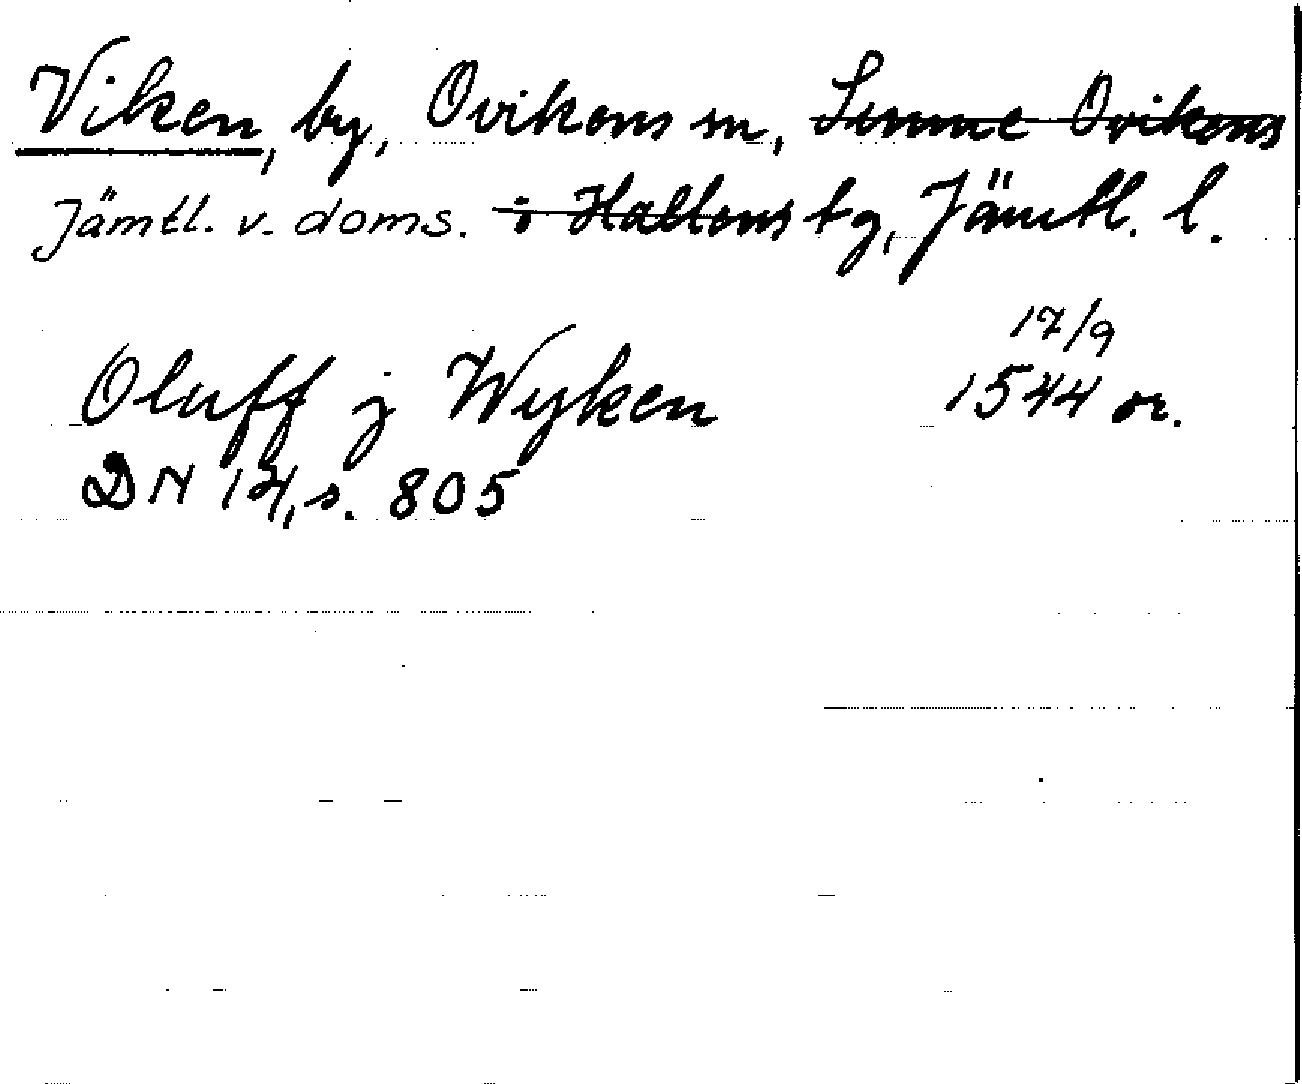 Viken, by, Ovikens sn, Sunne Ovikens
Jämtl. v. doms. o Hallens tg, Jämtl. l.
17/9
Oluff j Wyken 1544 or.
DN 14, s. 805